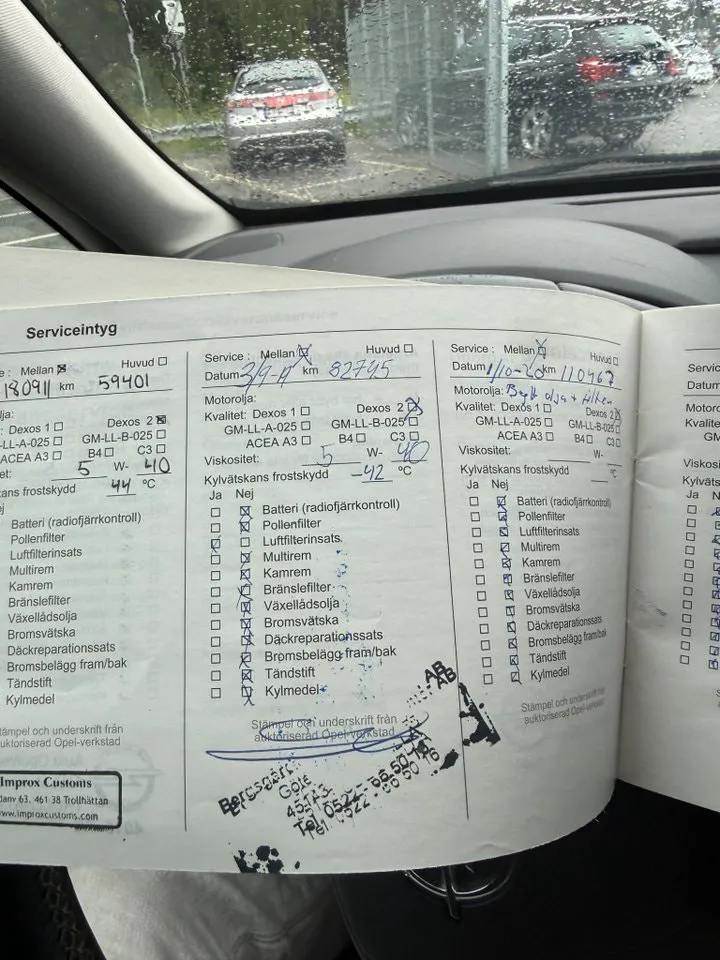 Serviceintyg
Mellan Huvud
180911 km 59401
Dexos 1 Dexos 2
GM-LL-B-025
ACEA A3 B4 C3
5 W- 40
frostskydd 44 °C
Batteri (radiofjärrkontroll)
Pollenfilter
Luftfilterinsats
Multirem
Kamrem
Bränslefilter
Växellådsolja
Bromsvätska
Däckreparationssats
Bromsbelägg fram/bak
Tändstift
Kylmedel
Stämpel och underskrift från
auktoriserad Opel-verkstad
Improx Customs
63. 461 38 Trollhättan
www.improxcustoms.com
Service : Mellan Huvud
Datum km 82795
Motorolja:
Kvalitet: Dexos 1 Dexos 2
GM-LL-A-025 GM-LL-B-025
ACEA A3 B4 C3
Viskositet: 5 W- 40
Kylvätskans frostskydd -42 °C
Ja Nej
Batteri (radiofjärrkontroll)
Pollenfilter
Luftfilterinsats
Multirem
Kamrem
Bränslefilter
Växellådsolja
Bromsvätska
Däckreparationssats
Bromsbelägg fram/bak
Tändstift
Kylmedel
Stämpel och underskrift från
auktoriserad Opel-verkstad
AB
AB
Tel. 0522 - 66 50 16
Service : Mellan Huvud
Datum 1/10-20 km 110467
Motorolja: Bytt olja + filter
Kvalitet: Dexos 1 Dexos 2
GM-LL-A-025 GM-LL-B-025
ACEA A3 B4 C3
Viskositet: W-
Kylvätskans frostskydd °C
Ja Nej
Batteri (radiofjärrkontroll)
Pollenfilter
Luftfilterinsats
Multirem
Kamrem
Bränslefilter
Växellådsolja
Bromsvätska
Däckreparationssats
Bromsbelägg fram/bak
Tändstift
Kylmedel
Stämpel och underskrift från
auktoriserad Opel-verkstad
Datum